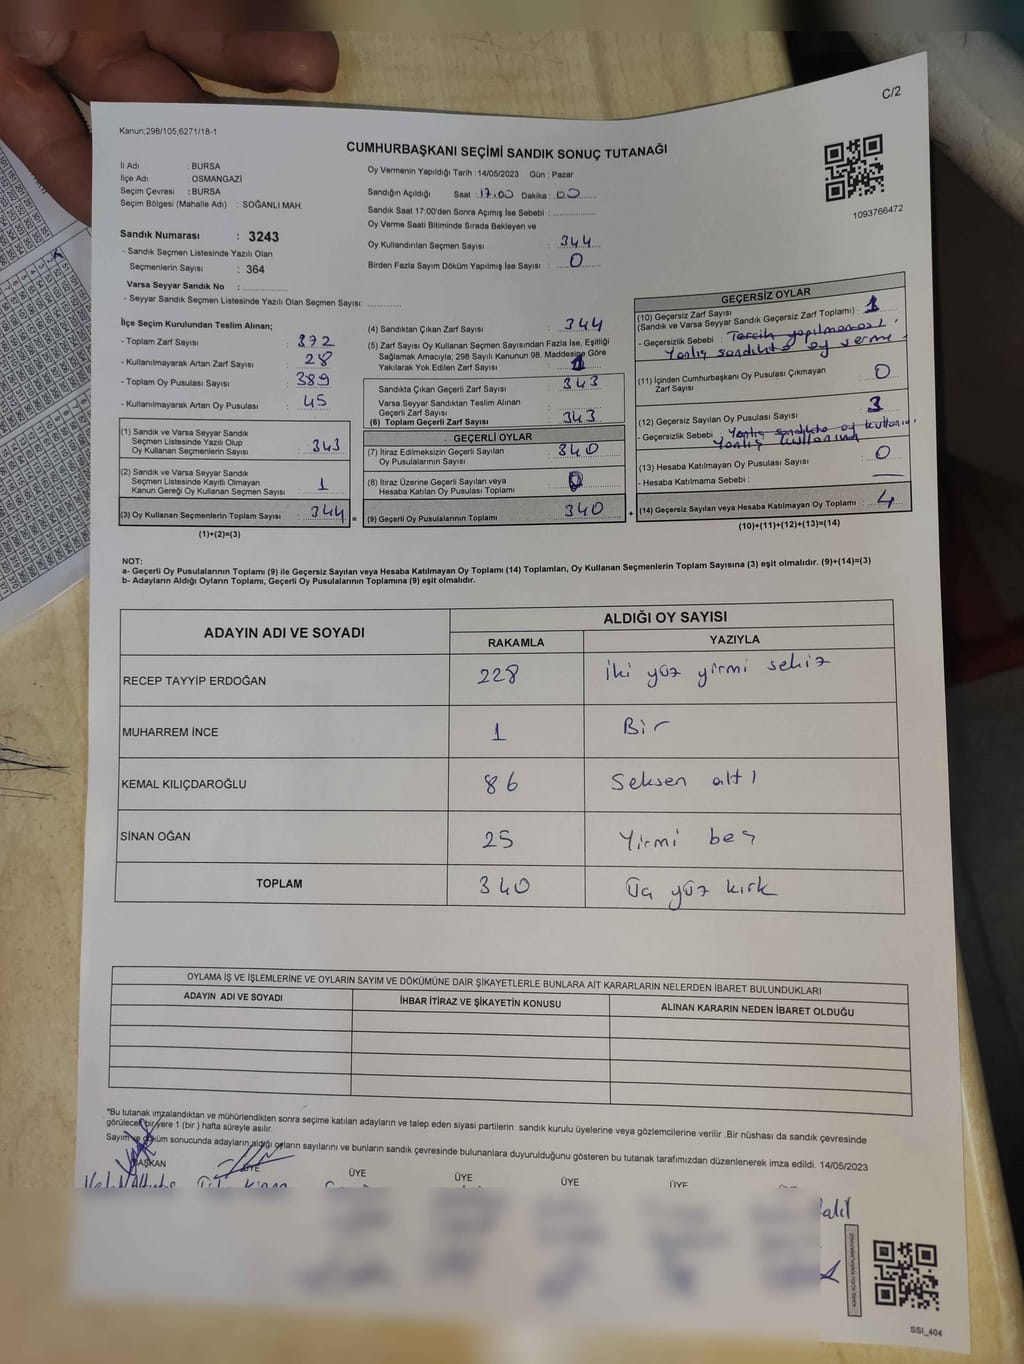 C/2
Kanun;298/105;6271/18-1
CUMHURBAŞKANI SEÇİMİ SANDIK SONUÇ TUTANAĞI
İl Adı : BURSA
İlçe Adı : OSMANGAZİ
Seçim Çevresi : BURSA
Seçim Bölgesi (Mahalle Adı) : SOĞANLI MAH.
Sandık Numarası : 3243
- Sandık Seçmen Listesinde Yazılı Olan
Seçmenlerin Sayısı : 364
Varsa Seyyar Sandık No :
- Seyyar Sandık Seçmen Listesinde Yazılı Olan Seçmen Sayısı:
Oy Vermenin Yapıldığı Tarih : 14/05/2023 Gün : Pazar
Sandığın Açıldığı Saat : 17.00 Dakika : 00
Sandık Saat 17:00'den Sonra Açımış İse Sebebi :
Oy Verme Saati Bitiminde Sırada Bekleyen ve
Oy Kullandırılan Seçmen Sayısı : 344
Birden Fazla Sayım Döküm Yapılmış İse Sayısı : 0
1093766472
İlçe Seçim Kurulundan Teslim Alınan;
- Toplam Zarf Sayısı : 372
- Kullanılmayarak Artan Zarf Sayısı : 28
- Toplam Oy Pusulası Sayısı : 389
- Kullanılmayarak Artan Oy Pusulası : 45
(1) Sandık ve Varsa Seyyar Sandık
Seçmen Listesinde Yazılı Olup
Oy Kullanan Seçmenlerin Sayısı : 343
(2) Sandık ve Varsa Seyyar Sandık
Seçmen Listesinde Kayıtlı Olmayan
Kanun Gereği Oy Kullanan Seçmen Sayısı : 1
(3) Oy Kullanan Seçmenlerin Toplam Sayısı : 344
(1)+(2)=(3)
=
(4) Sandıktan Çıkan Zarf Sayısı : 344
(5) Zarf Sayısı Oy Kullanan Seçmen Sayısından Fazla İse, Eşitliği
Sağlamak Amacıyla; 298 Sayılı Kanunun 98. Maddesine Göre
Yakılarak Yok Edilen Zarf Sayısı :
Sandıkta Çıkan Geçerli Zarf Sayısı : 343
Varsa Seyyar Sandıktan Teslim Alınan
Geçerli Zarf Sayısı :
(6) Toplam Geçerli Zarf Sayısı : 343
GEÇERLİ OYLAR
(7) İtiraz Edilmeksizin Geçerli Sayılan
Oy Pusulalarının Sayısı : 340
(8) İtiraz Üzerine Geçerli Sayılan veya
Hesaba Katılan Oy Pusulası Toplamı : 0
(9) Geçerli Oy Pusulalarının Toplamı : 340
+
GEÇERSİZ OYLAR
(10) Geçersiz Zarf Sayısı
(Sandık ve Varsa Seyyar Sandık Geçersiz Zarf Toplamı) : 1
- Geçersizlik Sebebi : Tercih yapılmaması
Yanlış sandıkta oy verme
(11) İçinden Cumhurbaşkanı Oy Pusulası Çıkmayan
Zarf Sayısı : 0
(12) Geçersiz Sayılan Oy Pusulası Sayısı : 3
- Geçersizlik Sebebi : Yanlış sandıkta oy
Yanlış
(13) Hesaba Katılmayan Oy Pusulası Sayısı : 0
- Hesaba Katılmama Sebebi :
(14) Geçersiz Sayılan veya Hesaba Katılmayan Oy Toplamı : 4
(10)+(11)+(12)+(13)=(14)
NOT:
a- Geçerli Oy Pusulalarının Toplamı (9) ile Geçersiz Sayılan veya Hesaba Katılmayan Oy Toplamı (14) Toplamları, Oy Kullanan Seçmenlerin Toplam Sayısına (3) eşit olmalıdır. (9)+(14)=(3)
b- Adayların Aldığı Oyların Toplamı, Geçerli Oy Pusulalarının Toplamına (9) eşit olmalıdır.
ADAYIN ADI VE SOYADI
ALDIĞI OY SAYISI
RAKAMLA YAZIYLA
RECEP TAYYİP ERDOĞAN 228 iki yüz yirmi sekiz
MUHARREM İNCE 1 Bir
KEMAL KILIÇDAROĞLU 86 Seksen altı
SİNAN OĞAN 25 Yirmi beş
TOPLAM 340 Üç yüz kırk
OYLAMA İŞ VE İŞLEMLERİNE VE OYLARIN SAYIM VE DÖKÜMÜNE DAİR ŞİKAYETLERLE BUNLARA AİT KARARLARIN NELERDEN İBARET BULUNDUKLARI
ADAYIN ADI VE SOYADI İHBAR İTİRAZ VE ŞİKAYETİN KONUSU ALINAN KARARIN NEDEN İBARET OLDUĞU
*Bu tutanak imzalandıktan ve mühürlendikten sonra seçime katılan adayların ve talep eden siyasi partilerin sandık kurulu üyelerine veya gözlemcilerine verilir .Bir nüshası da sandık çevresinde
görülecek bir yere 1 (bir ) hafta süreyle asılır.
Sayım ve döküm sonucunda adayların aldığı oyların sayılarını ve bunların sandık çevresinde bulunanlara duyurulduğunu gösteren bu tutanak tarafımızdan düzenlenerek imza edildi. 14/05/2023
BAŞKAN ÜYE ÜYE ÜYE ÜYE ÜYE
SSI_404